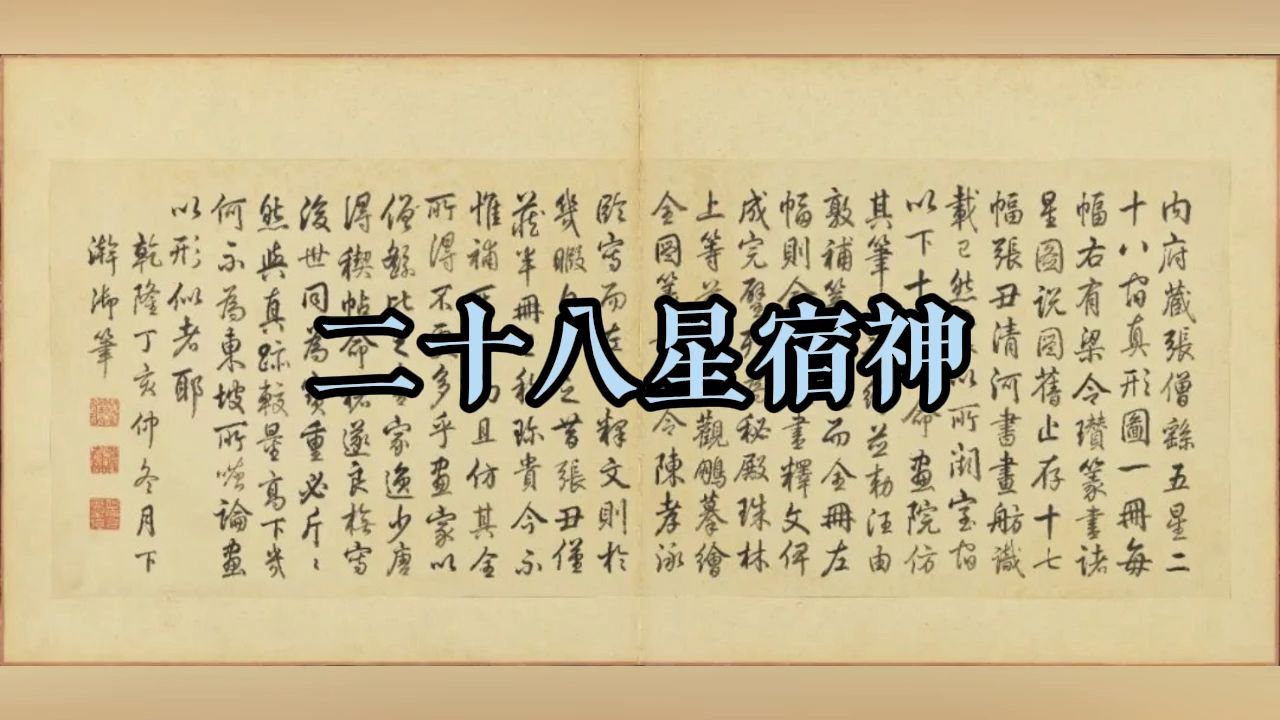 二十八星宿神
内府藏張僧繇五星二
十八宿真形圖一冊每
幅右有梁令瓚篆書諸
星圖說圖舊止存十七
幅張丑清河書畫舫識
載已然以所闕室宿
以下十命畫院仿
其筆並勅汪由
敦補而全冊左
幅則命書釋文俾
成完璧秘殿珠林
上等觀鵬摹繪
全圖令陳孝泳
臨寫而釋文則於
幾暇昔張丑僅
藏半冊珍貴今不
惟補且仿其全
所得不多乎畫家以
僧繇比之書家逸少唐
得稧帖命遂良檢寫
後世同為寶重必斤〻
然與真跡較量高下幾
何不為東坡所嗤論畫
以形似者耶
乾隆丁亥仲冬月下
澣御筆